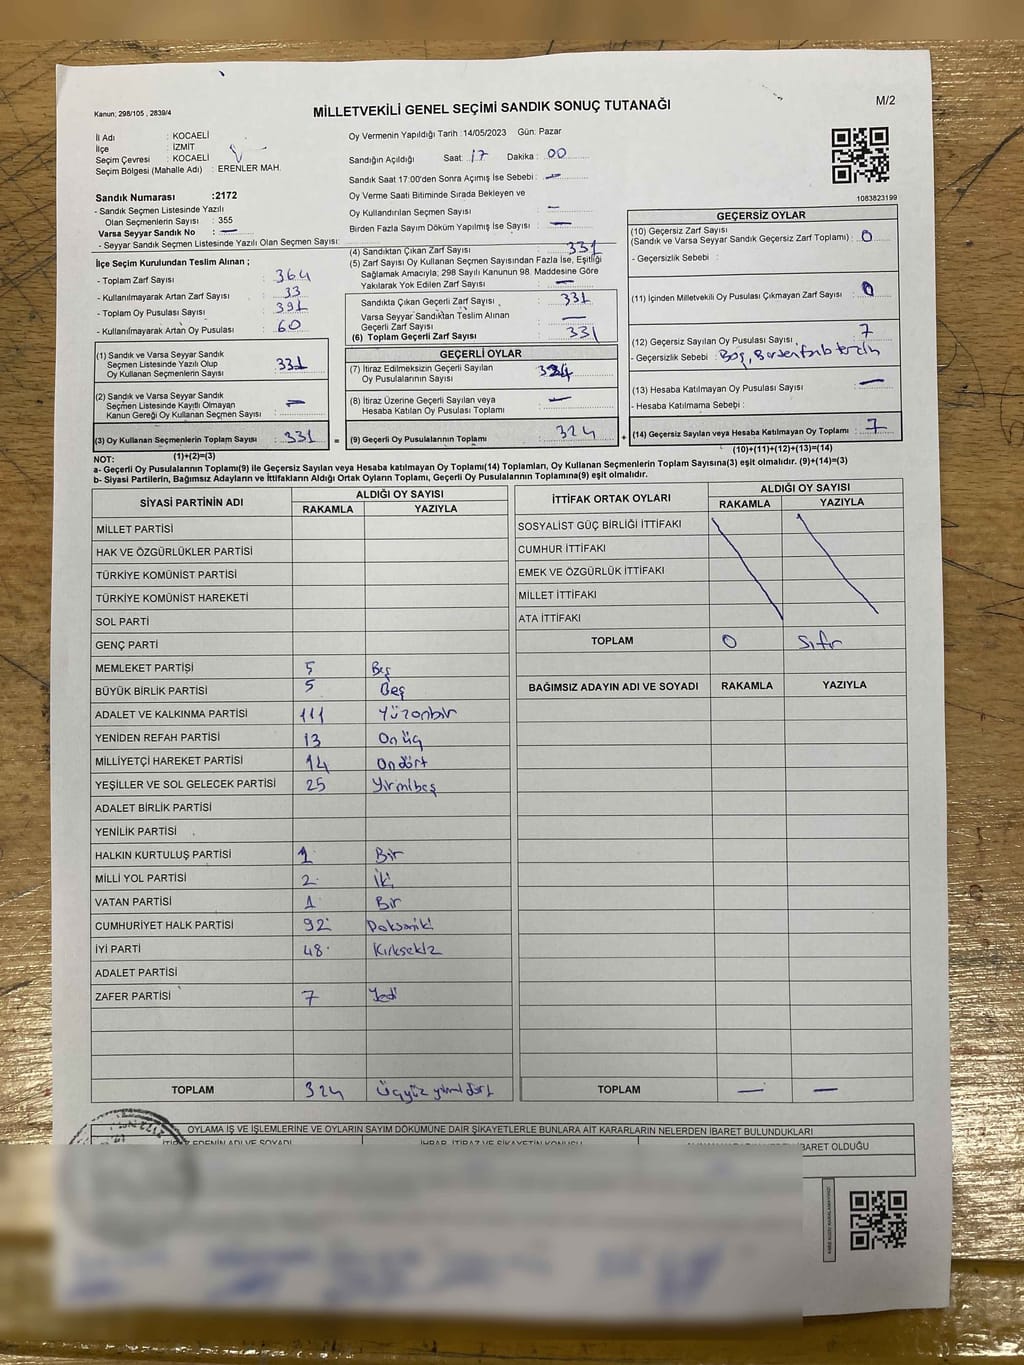 Kanun; 298/105 , 2839/4
MİLLETVEKİLİ GENEL SEÇİMİ SANDIK SONUÇ TUTANAĞI
M/2
İl Adı : KOCAELİ
İlçe : İZMİT
Seçim Çevresi : KOCAELİ
Seçim Bölgesi (Mahalle Adı) : ERENLER MAH.
Oy Vermenin Yapıldığı Tarih :14/05/2023 Gün: Pazar
Sandığın Açıldığı Saat: 17 Dakika : 00
Sandık Saat 17:00'den Sonra Açımış İse Sebebi : —
Oy Verme Saati Bitiminde Sırada Bekleyen ve
Oy Kullandırılan Seçmen Sayısı : —
Birden Fazla Sayım Döküm Yapılmış İse Sayısı : —
1083823199
Sandık Numarası :2172
- Sandık Seçmen Listesinde Yazılı
Olan Seçmenlerin Sayısı : 355
Varsa Seyyar Sandık No : —
- Seyyar Sandık Seçmen Listesinde Yazılı Olan Seçmen Sayısı:
İlçe Seçim Kurulundan Teslim Alınan ;
- Toplam Zarf Sayısı : 364
- Kullanılmayarak Artan Zarf Sayısı : 33
- Toplam Oy Pusulası Sayısı : 391
- Kullanılmayarak Artan Oy Pusulası : 60
(1) Sandık ve Varsa Seyyar Sandık
Seçmen Listesinde Yazılı Olup
Oy Kullanan Seçmenlerin Sayısı : 331
(2) Sandık ve Varsa Seyyar Sandık
Seçmen Listesinde Kayıtlı Olmayan
Kanun Gereği Oy Kullanan Seçmen Sayısı : —
(3) Oy Kullanan Seçmenlerin Toplam Sayısı : 331 =
(1)+(2)=(3)
(4) Sandıktan Çıkan Zarf Sayısı : 331
(5) Zarf Sayısı Oy Kullanan Seçmen Sayısından Fazla İse, Eşitliği
Sağlamak Amacıyla; 298 Sayılı Kanunun 98. Maddesine Göre
Yakılarak Yok Edilen Zarf Sayısı : —
Sandıkta Çıkan Geçerli Zarf Sayısı : 331
Varsa Seyyar Sandıktan Teslim Alınan
Geçerli Zarf Sayısı : —
(6) Toplam Geçerli Zarf Sayısı : 331
GEÇERLİ OYLAR
(7) İtiraz Edilmeksizin Geçerli Sayılan
Oy Pusulalarının Sayısı : 324
(8) İtiraz Üzerine Geçerli Sayılan veya
Hesaba Katılan Oy Pusulası Toplamı : —
(9) Geçerli Oy Pusulalarının Toplamı : 324 +
GEÇERSİZ OYLAR
(10) Geçersiz Zarf Sayısı
(Sandık ve Varsa Seyyar Sandık Geçersiz Zarf Toplamı) : 0
- Geçersizlik Sebebi :
(11) İçinden Milletvekili Oy Pusulası Çıkmayan Zarf Sayısı : 0
(12) Geçersiz Sayılan Oy Pusulası Sayısı : 7
- Geçersizlik Sebebi : Boş, Birden fazla tercih
(13) Hesaba Katılmayan Oy Pusulası Sayısı : —
- Hesaba Katılmama Sebebi :
(14) Geçersiz Sayılan veya Hesaba Katılmayan Oy Toplamı : 7
(10)+(11)+(12)+(13)=(14)
NOT:
a- Geçerli Oy Pusulalarının Toplamı(9) ile Geçersiz Sayılan veya Hesaba katılmayan Oy Toplamı(14) Toplamları, Oy Kullanan Seçmenlerin Toplam Sayısına(3) eşit olmalıdır. (9)+(14)=(3)
b- Siyasi Partilerin, Bağımsız Adayların ve İttifakların Aldığı Ortak Oyların Toplamı, Geçerli Oy Pusulalarının Toplamına(9) eşit olmalıdır.
SİYASİ PARTİNİN ADI ALDIĞI OY SAYISI
RAKAMLA YAZIYLA
MİLLET PARTİSİ
HAK VE ÖZGÜRLÜKLER PARTİSİ
TÜRKİYE KOMÜNİST PARTİSİ
TÜRKİYE KOMÜNİST HAREKETİ
SOL PARTİ
GENÇ PARTİ
MEMLEKET PARTİSİ 5 Beş
BÜYÜK BİRLİK PARTİSİ 5 Beş
ADALET VE KALKINMA PARTİSİ 111 Yüzonbir
YENİDEN REFAH PARTİSİ 13 Onüç
MİLLİYETÇİ HAREKET PARTİSİ 14 Ondört
YEŞİLLER VE SOL GELECEK PARTİSİ 25 Yirmibeş
ADALET BİRLİK PARTİSİ
YENİLİK PARTİSİ
HALKIN KURTULUŞ PARTİSİ 1 Bir
MİLLİ YOL PARTİSİ 2 İki
VATAN PARTİSİ 1 Bir
CUMHURİYET HALK PARTİSİ 92 Doksaniki
İYİ PARTİ 48 Kırksekiz
ADALET PARTİSİ
ZAFER PARTİSİ 7 Yedi
TOPLAM 324 Üçyüz yirmi dört
İTTİFAK ORTAK OYLARI ALDIĞI OY SAYISI
RAKAMLA YAZIYLA
SOSYALİST GÜÇ BİRLİĞİ İTTİFAKI
CUMHUR İTTİFAKI
EMEK VE ÖZGÜRLÜK İTTİFAKI
MİLLET İTTİFAKI
ATA İTTİFAKI
TOPLAM 0 Sıfır
BAĞIMSIZ ADAYIN ADI VE SOYADI RAKAMLA YAZIYLA
TOPLAM — —
OYLAMA İŞ VE İŞLEMLERİNE VE OYLARIN SAYIM DÖKÜMÜNE DAİR ŞİKAYETLERLE BUNLARA AİT KARARLARIN NELERDEN İBARET BULUNDUKLARI
İTİRAZ EDENİN ADI VE SOYADI İHBAR, İTİRAZ VE ŞİKAYETİN KONUSU İBARET OLDUĞU